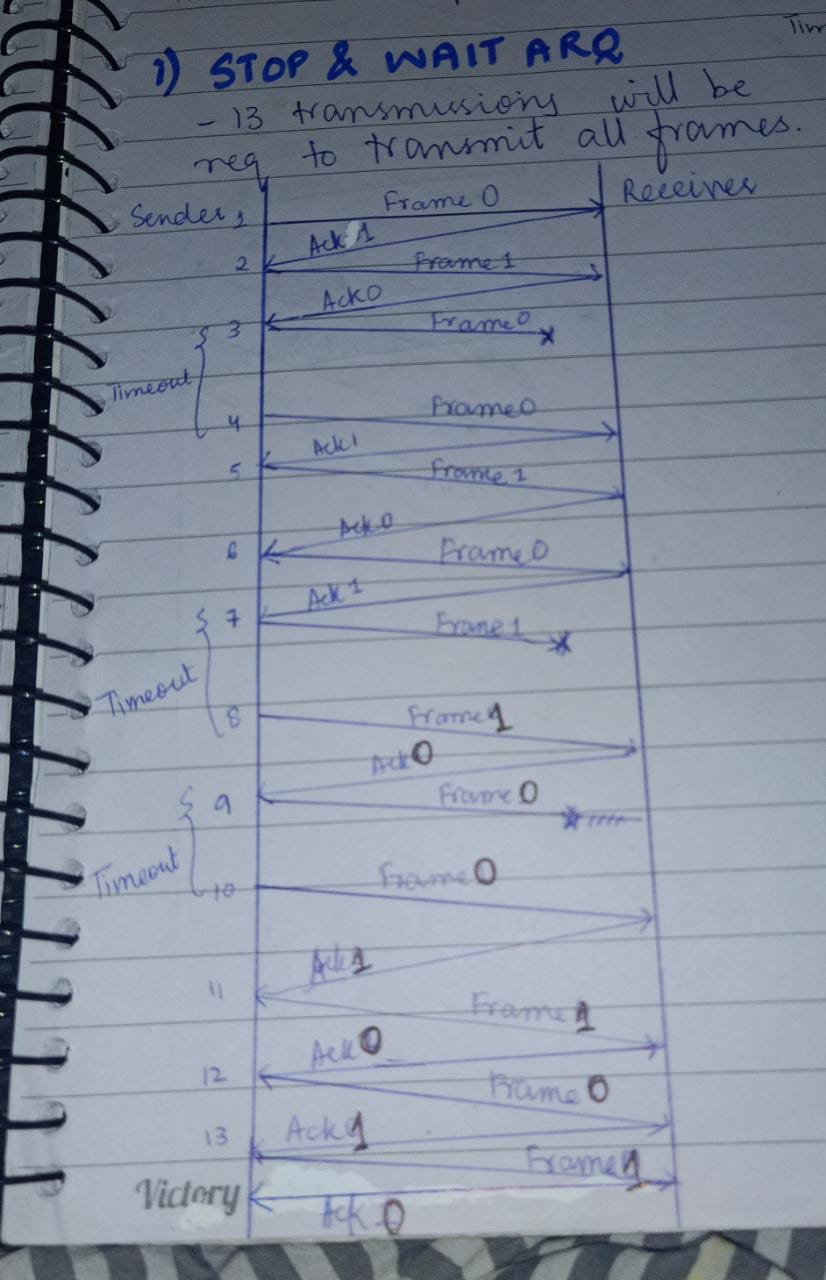 Tim
1) STOP & WAIT ARQ
- 13 transmissions will be
req to transmit all frames.
Sender Receiver
1 Frame 0
Ack 1
2 Frame 1
Ack 0
3 Frame 0
Timeout
4 Frame 0
Ack 1
5 Frame 1
Ack 0
6 Frame 0
Ack 1
7 Frame 1
Timeout
8 Frame 1
Ack 0
9 Frame 0
Timeout
10 Frame 0
Ack 1
11 Frame 1
Ack 0
12 Frame 0
Ack 1
13 Frame 1
Victory
Ack 0